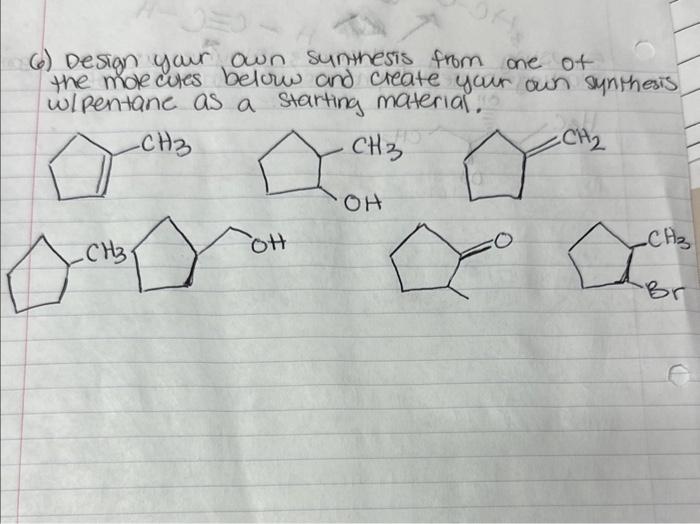 6) Design your own sunthesis from one of
the molecules below and create your own synthesis
w/pentane as a starting material.
CH3 CH3 CH2
OH
CH3 OH O CH3
Br